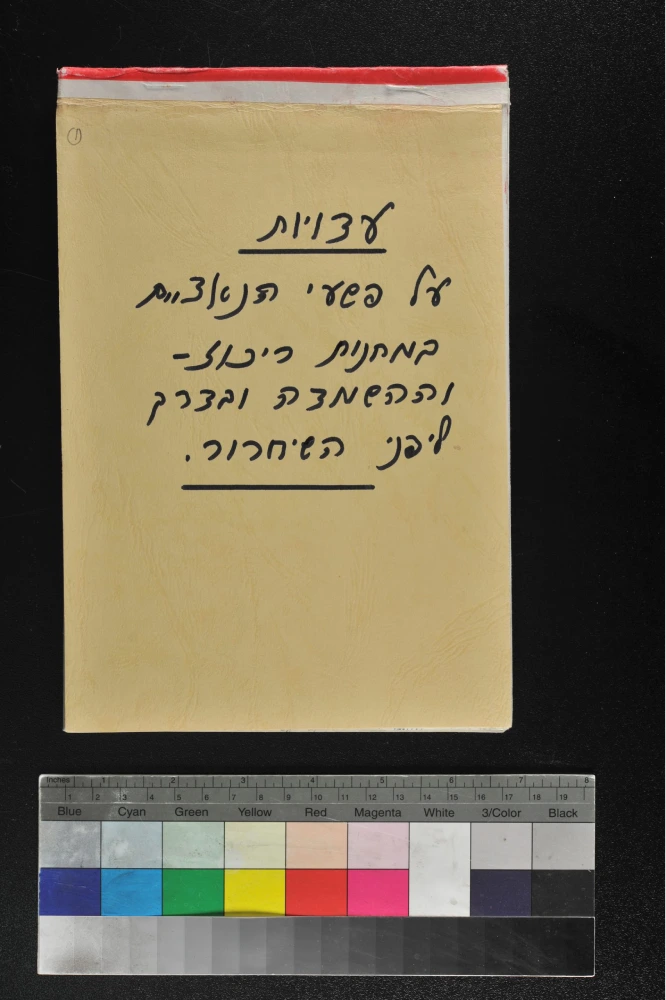 (1)
עדויות
על פשעי הנאצים
במחנות ריכוז-
וההשמדה ובדרך
לפני השיחרור.
Inches 1 2 3 4 5 6 7 8
1 2 3 4 5 6 7 8 9 10 11 12 13 14 15 16 17 18 19
Blue Cyan Green Yellow Red Magenta White 3/Color Black